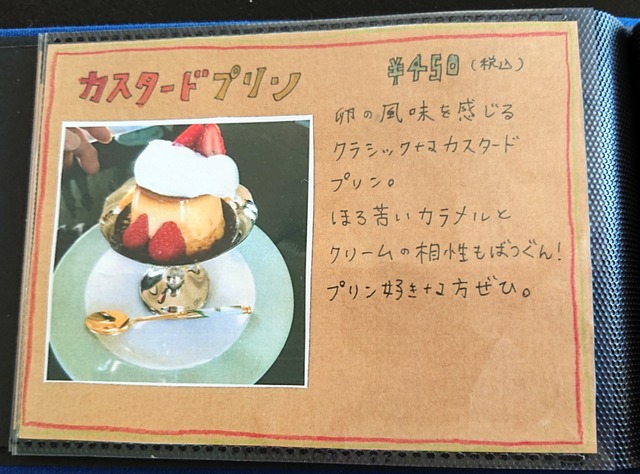 カスタードプリン
¥450（税込）
卵の風味を感じる
クラシックなカスタード
プリン。
ほろ苦いカラメルと
クリームの相性もばつぐん！
プリン好きな方ぜひ。